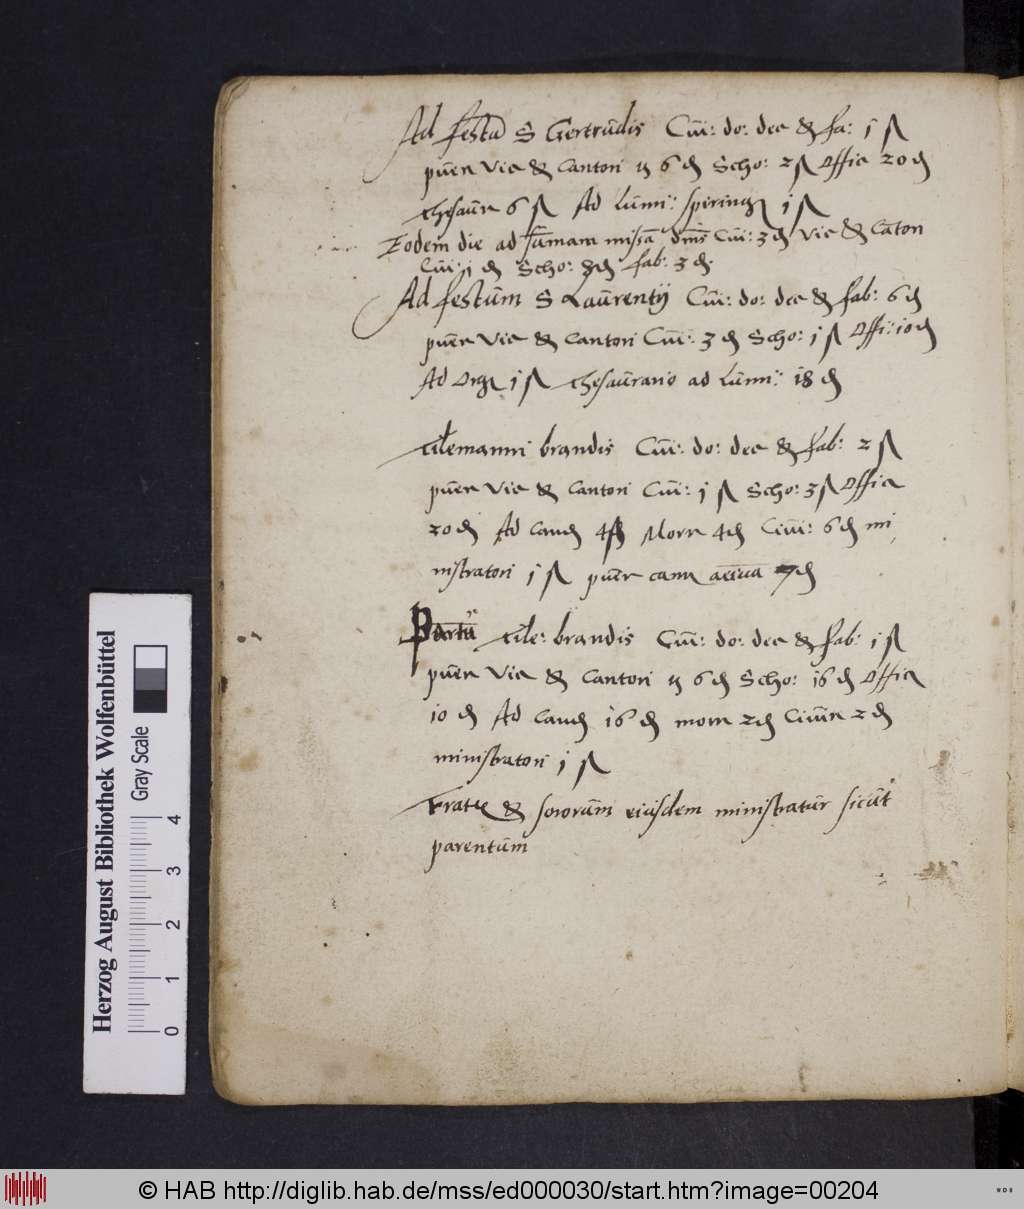 Ad festū S Gertrudis Cui: do: dec & fa: 1 ß
puer Vic & Cantori 6 ₰ Scho: 2 ß Offic 20 ₰
thesaur 6 ß Ad Lumi: spering 1 ß
Eodem die ad sumam missā Cui: 3 ₰ Vic & Canton
Cui: 1 ₰ Scho: 8 ₰ fab: 3 ₰
Ad festum S Laurentij Cui: do: dec & fab: 6 ₰
puer Vic & Cantori Cui: 3 ₰ Scho: 1 ß Offi: 10 ₰
Ad Org 1 ß thesaurario ad Lumi: 18 ₰
tilemanni brandis Cui: do: dec & fab: 2 ß
puer Vic & Cantori Cui: 1 ß Scho: 3 ß Offic
20 ₰ Ad Camp 4 Morr 4 ₰ Civi: 6 ₰ mi
nistratori 1 ß puer 7 ₰
tile: brandis Cui: do: dec & fab: 1 ß
puer Vic & Cantori 6 ₰ Scho: 16 ₰ Offic
10 ₰ Ad Camp 16 ₰ morr 2 ₰ Civir 2 ₰
ministratori 1 ß
& sororum eiusdem ministratur sicut
parentum
Herzog August Bibliothek Wolfenbüttel
Gray Scale
0 1 2 3 4
© HAB http://diglib.hab.de/mss/ed000030/start.htm?image=00204